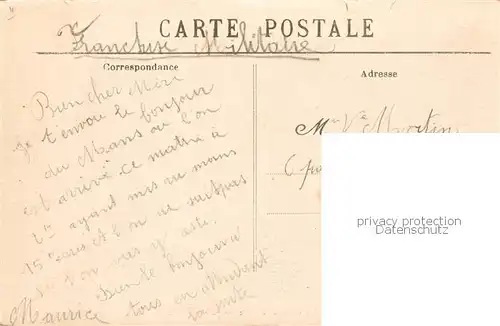 CARTE POSTALE
Franchise Militaire
Correspondance
Adresse
Bien cher Mère
je t'envoi le bonjour
du Mans ou l'on
est arrivé ce matin à
ayant mis au moins
15 et l'on ne sait pas
si l'on vas y
Bien le bonjour a
tous en attendant
la suite
Maurice
Mme Vve Martin
privacy protection
Datenschutz